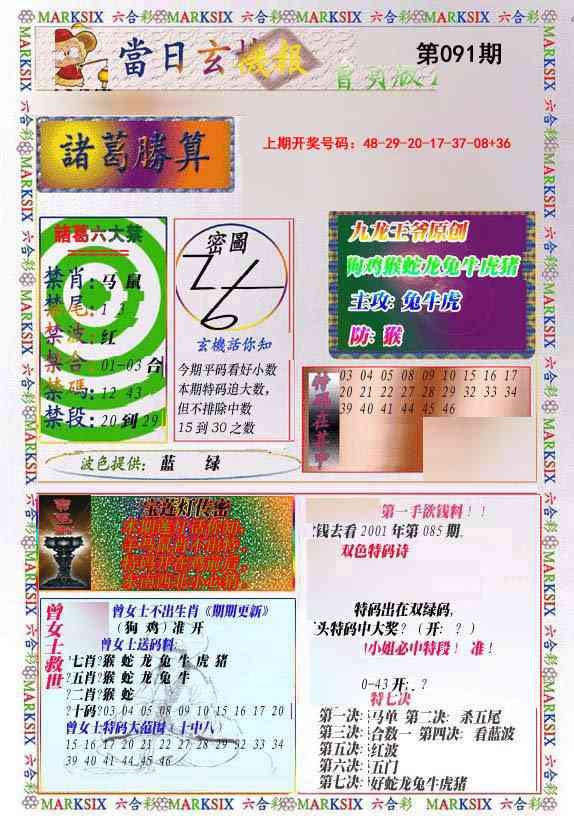 MARKSIX 六合彩 MARKSIX 六合彩 MARKSIX 六合彩 MARKSIX 六合彩
當日玄機報
第091期
諸葛勝算
上期开奖号码：48-29-20-17-37-08+36
諸葛六大禁
禁肖：马 鼠
禁尾：1 3
禁波：红
禁合：01-03 合
禁碼：12 43
禁段：20 到 29
密圖
玄機話你知
今期平码看好小数
本期特码追大数，
但不排除中数
15 到 30 之数
九龙王爷原创
狗鸡猴蛇龙兔牛虎猪
主攻：兔牛虎
防：猴
特码在其中
03 04 05 08 09 10 15 16 17
20 21 22 27 28 29 32 33 34
39 40 41 44 45 46
波色提供： 蓝 绿
宝莲灯传密
曾女士救世
曾女士不出生肖《期期更新》
（狗 鸡）准 开
曾女士送码料
七肖?猴 蛇 龙 兔 牛 虎 猪
?五肖?猴 蛇 龙 兔 牛
?二肖?猴 蛇
?十码?03 04 05 08 09 10 15 16 17 20
曾女士特码大范围（十中八）
15 16 17 20 21 22 27 28 29 32 33 34
39 40 41 44 45 46
第一手欲钱料！！
钱去看 2001 年第 085 期。
双色特码诗
特码出在双绿码，
头特码中大奖？（开：？）
小姐必中特段！ 准！
0-43 开：？
特七决
第一决：马单 第二决： 杀五尾
第三决：合数一 第四决： 看蓝波
第五决：红波
第六决：五门
第七决：好蛇龙兔牛虎猪
MARKSIX 六合彩 MARKSIX 六合彩 MARKSIX 六合彩 MARKSIX 六合彩